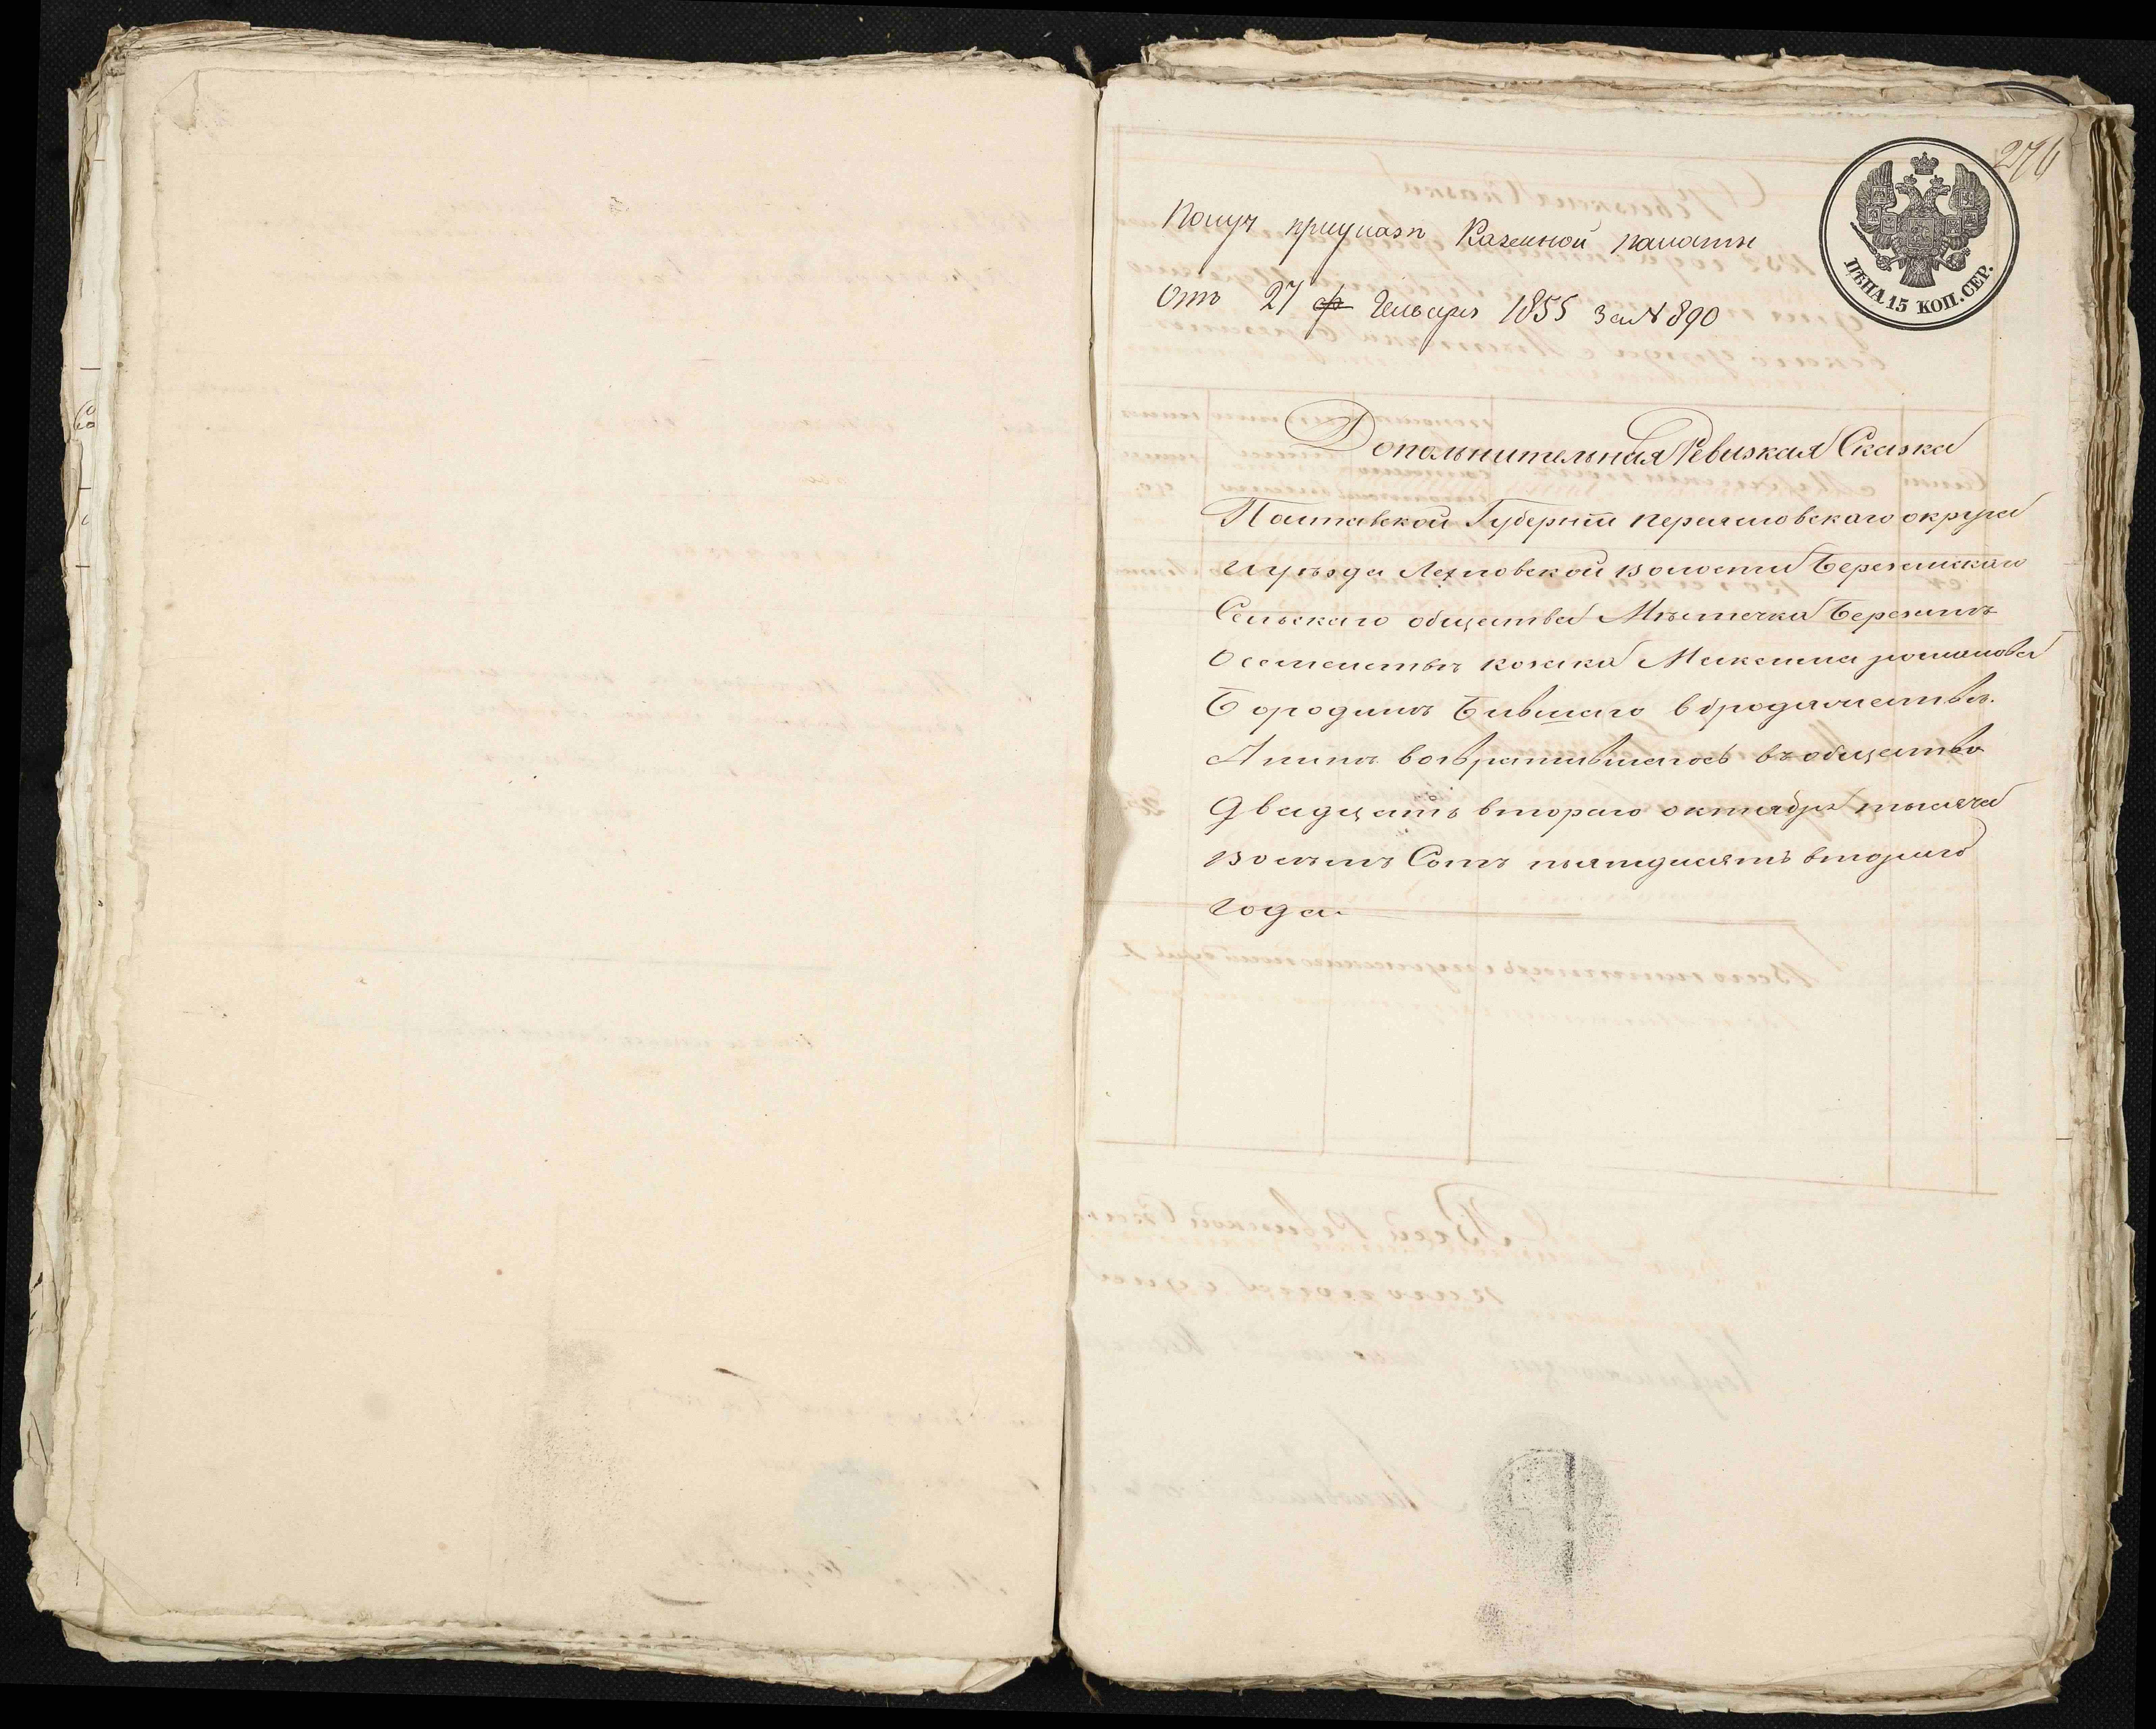 276
ЦѢНА 15 КОП. СЕР.
Получ при указѣ Казенной палаты
Отъ 27 Генваря 1855 за № 890
Дополнительная Ревизкая Сказка
Полтавской Губерніи Переяславскаго округа
и уѣзда Лехновской волости Березанскаго
Сельскаго общества Мѣстечка Березани
О семействѣ козака Максима романова
Бородинъ Бывшаго в бродяжествѣ.
А нынѣ возвратившагось въ общество
Двадцать втораго октября тысяча
восемъ Сотъ пятдесятъ втораго
года